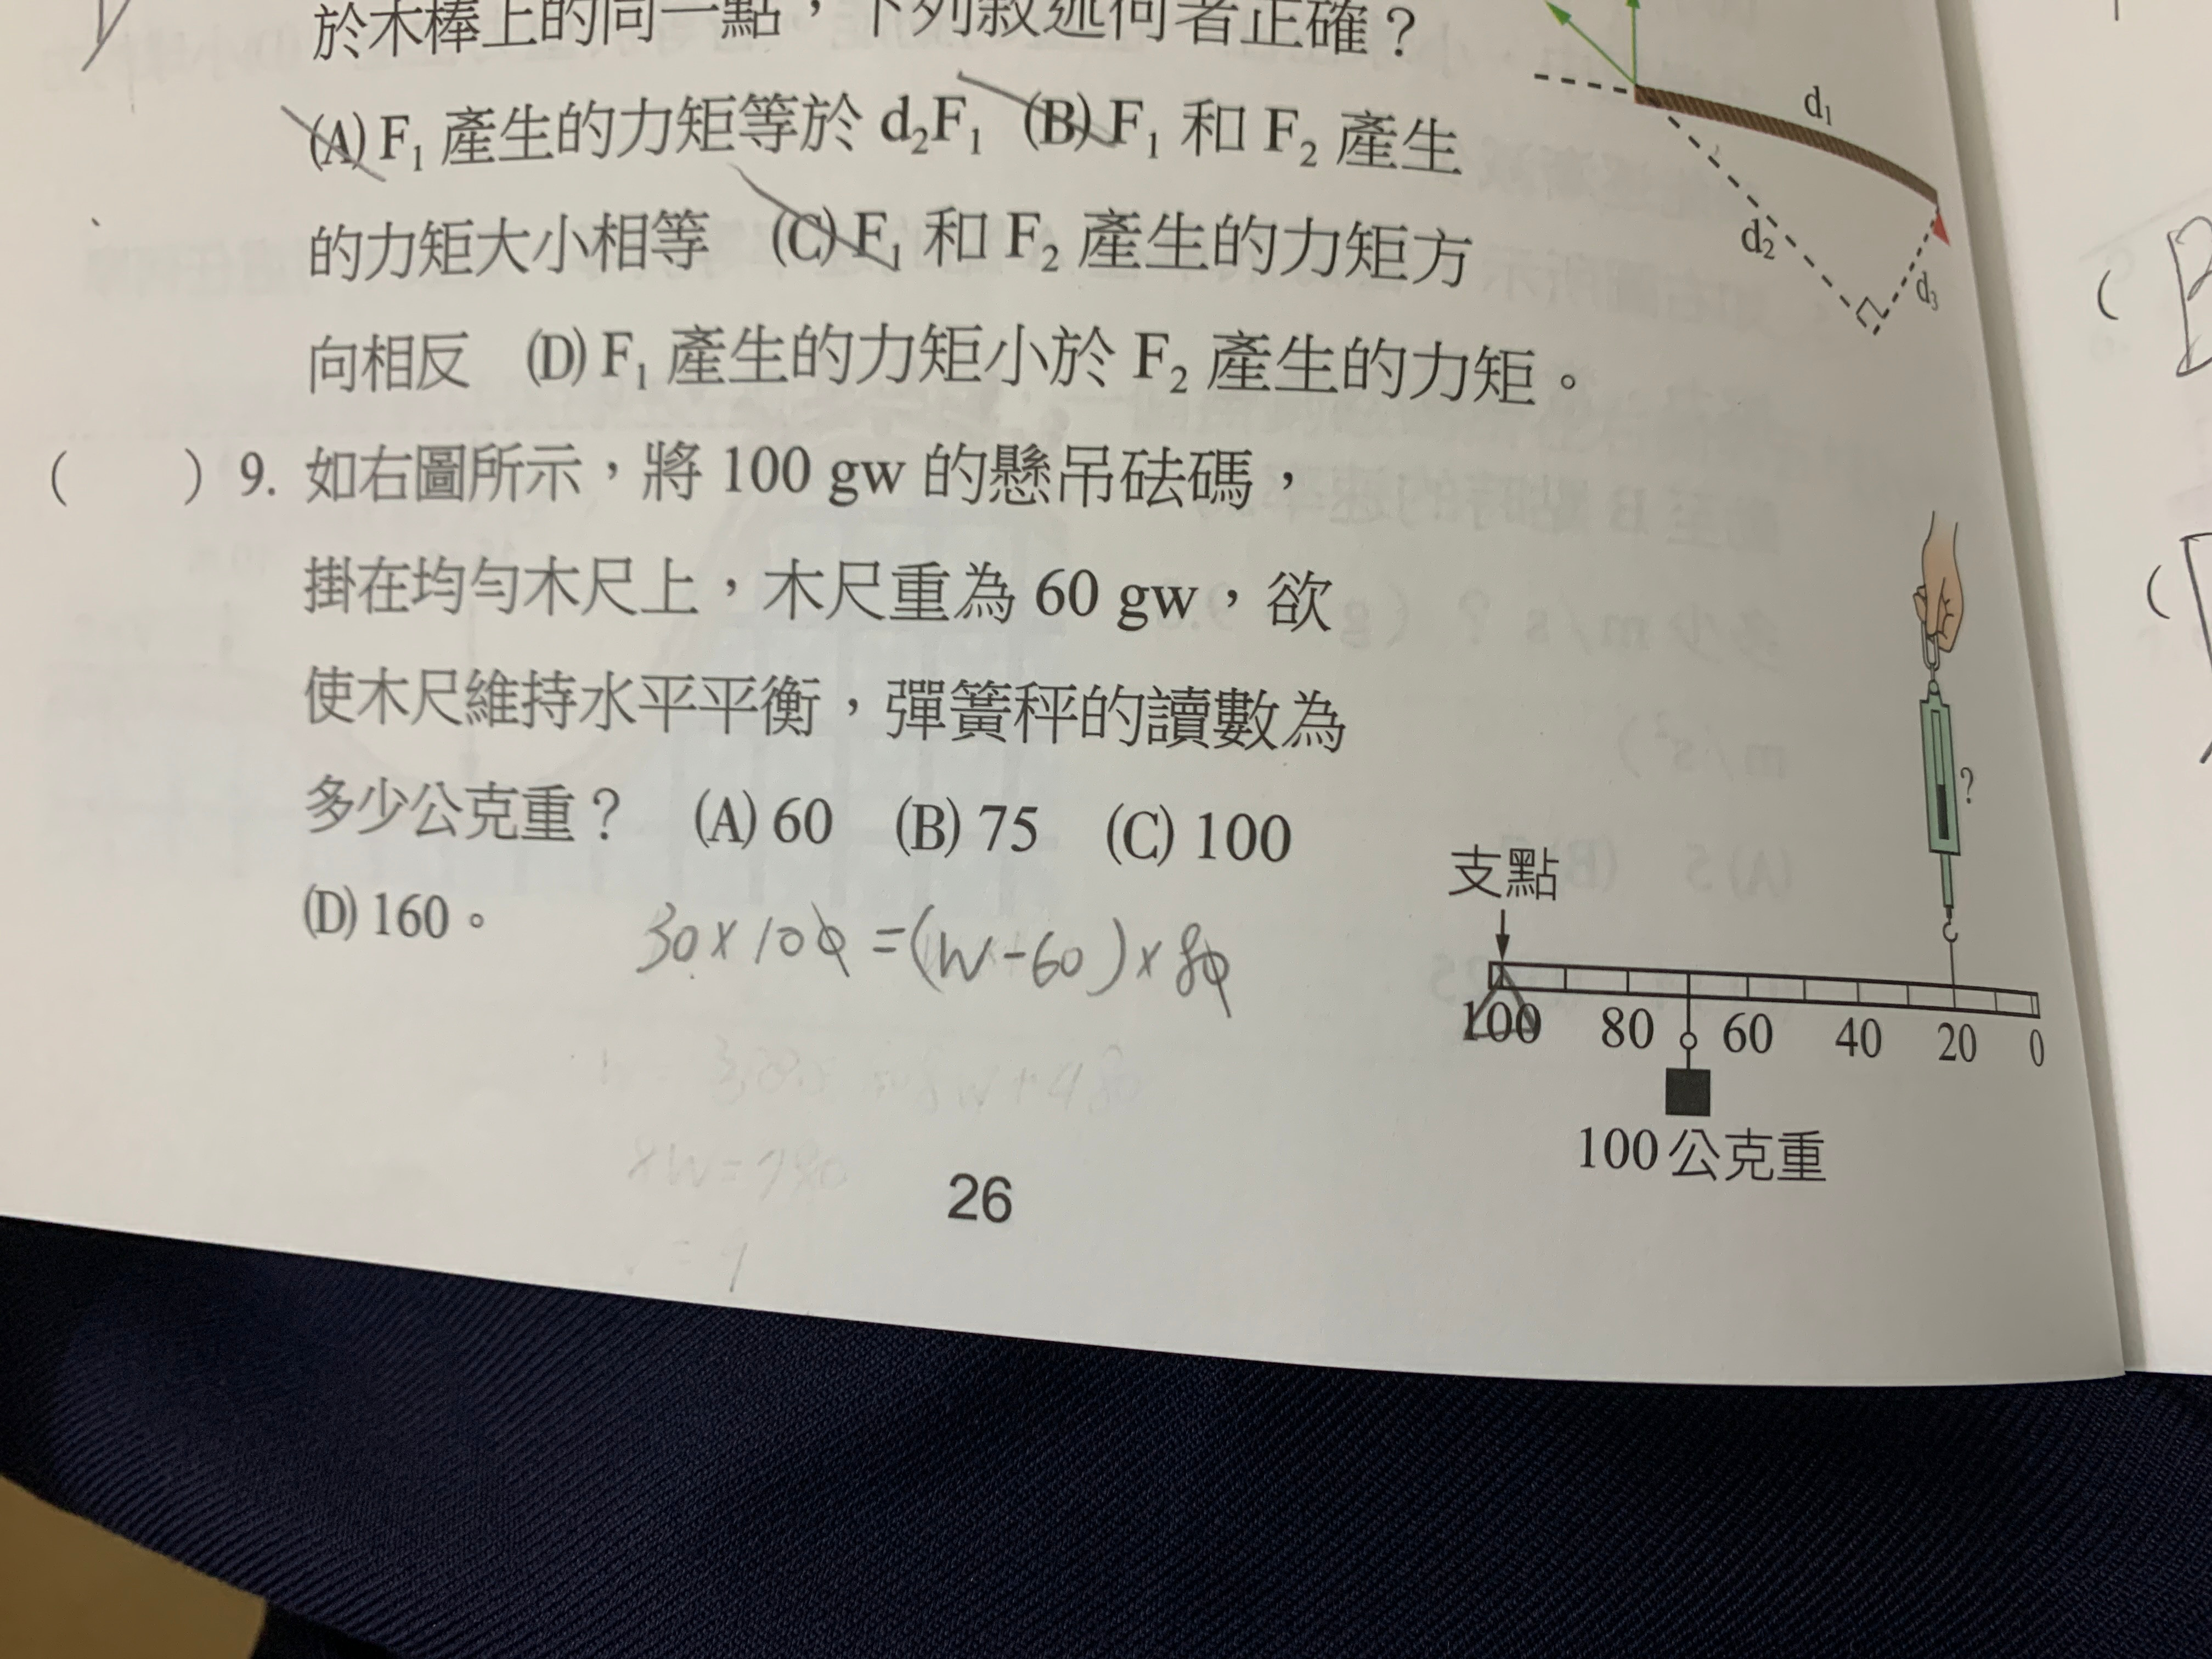 於木棒上的同一點，下列敘述何者正確？
(A) F₁ 產生的力矩等於 d₂F₁ (B) F₁ 和 F₂ 產生
的力矩大小相等 (C) F₁ 和 F₂ 產生的力矩方
向相反 (D) F₁ 產生的力矩小於 F₂ 產生的力矩。
d₁
d₂
d₃
( ) 9. 如右圖所示，將 100 gw 的懸吊砝碼，
掛在均勻木尺上，木尺重為 60 gw，欲
使木尺維持水平平衡，彈簧秤的讀數為
多少公克重？ (A) 60 (B) 75 (C) 100
(D) 160。
30×100=(W-60)×80
?
支點
100 80 60 40 20 0
100公克重
26